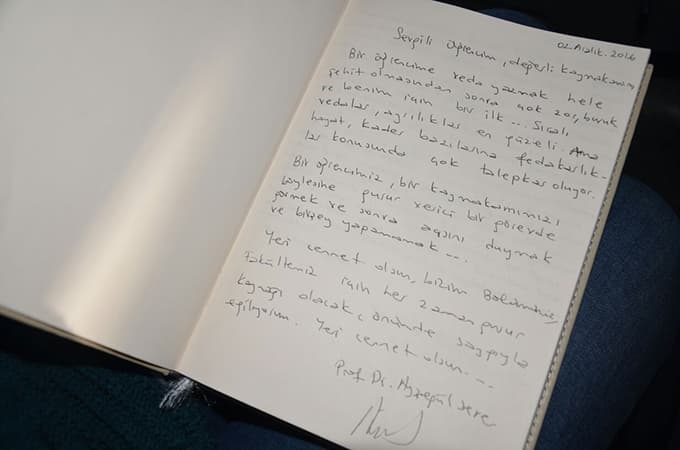 02.Aralık.2016
Sevgili öğrencim, değerli kaymakamım
Bir öğrencime veda yazmak hele
şehit olmasından sonra çok zor, buruk
ve benim için bir ilk... Sıralı
vedalar, ayrılıklar en güzeli. Ama
hayat, kader bazılarına fedakarlık-
lar konusunda çok talepkar oluyor.
Bir öğrencimizi, bir kaymakamımızı
böylesine gurur verici bir görevde
görmek ve sonra acısını duymak
ve birşey yapamamak...
Yeri cennet olsun, bizim Bölümümüz,
Fakültemiz için her zaman gurur
kaynağı olacak, önünde saygıyla
eğiliyorum. Yeri cennet olsun...
Prof. Dr. Ayşegül